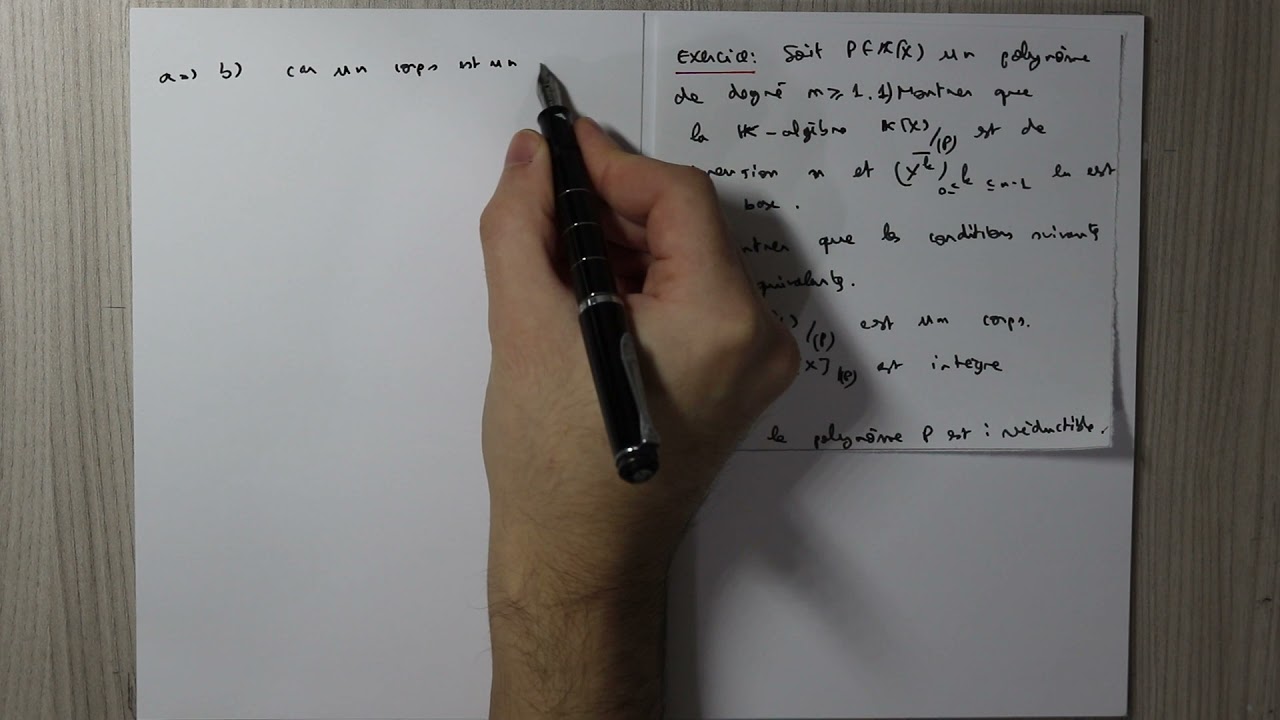 a => b) car un corps est un
Exercice: Soit P ∈ K[X] un polynôme
de degré n ≥ 1. 1) Montrer que
la K-algèbre K[X]/(P) est de
mension n et (X̄^k)_{0≤k≤n-1} en est
base.
ntrer que les conditions suivants
quivalents.
/(P) est un corps.
X]/(P) est intègre
le polynôme P est irréductible.